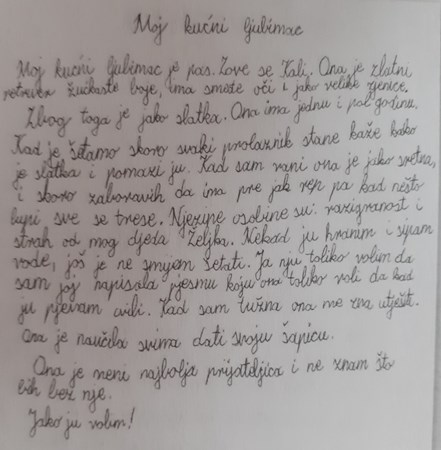 Moj kućni ljubimac
Moj kućni ljubimac je pas. Zove se Kali. Ona je zlatni
retriver žućkaste boje, ima smeđe oči i jako velike zjenice.
Zbog toga je jako slatka. Ona ima jednu i pol godinu.
Kad je šetamo skoro svaki prolaznik stane kaže kako
je slatka i pomazi ju. Kad sam vani ona je jako sretna,
i skoro zaboravih da ima pre jak rep pa kad nešto
lupi sve se trese. Njezine osobine su: razigranost i
strah od mog djeda Željka. Nekad ju hranim i sipam
vode, još je ne smijem šetati. Ja nju toliko volim da
sam joj napisala pjesmu koju ona toliko voli da kad
ju pjevam cvili. Kad sam tužna ona me zna utješiti.
Ona je naučila svima dati svoju šapicu.
Ona je meni najbolja prijateljica i ne znam što
bih bez nje.
Jako ju volim!